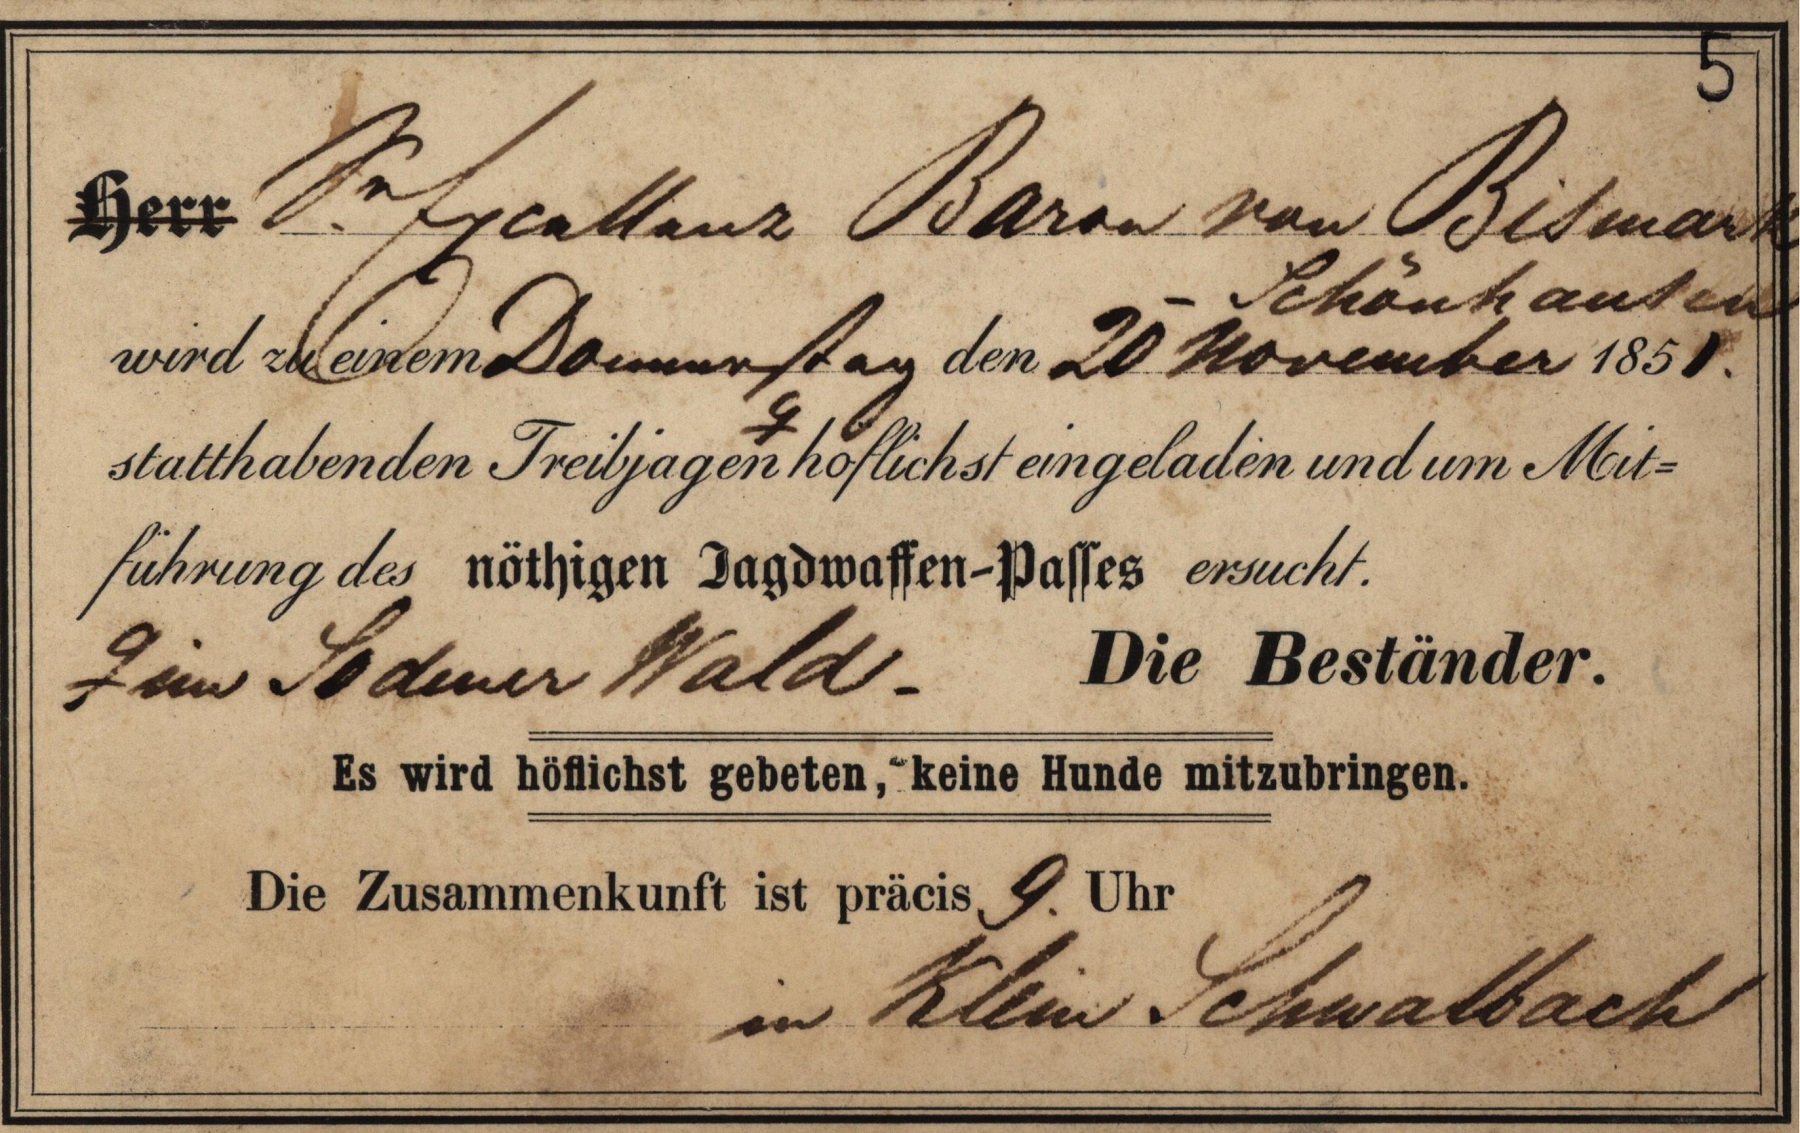 5
Herr Sr. Excellenz Baron von Bismark
- Schönhausen
wird zu einem Donnerstag den 20 November 1851.
statthabenden Treibjagen höflichst eingeladen und um Mit=
führung des nöthigen Jagdwaffen-Passes ersucht.
im Sodener Wald - Die Beständer.
Es wird höflichst gebeten, keine Hunde mitzubringen.
Die Zusammenkunft ist präcis 9. Uhr
in Klein Schwalbach